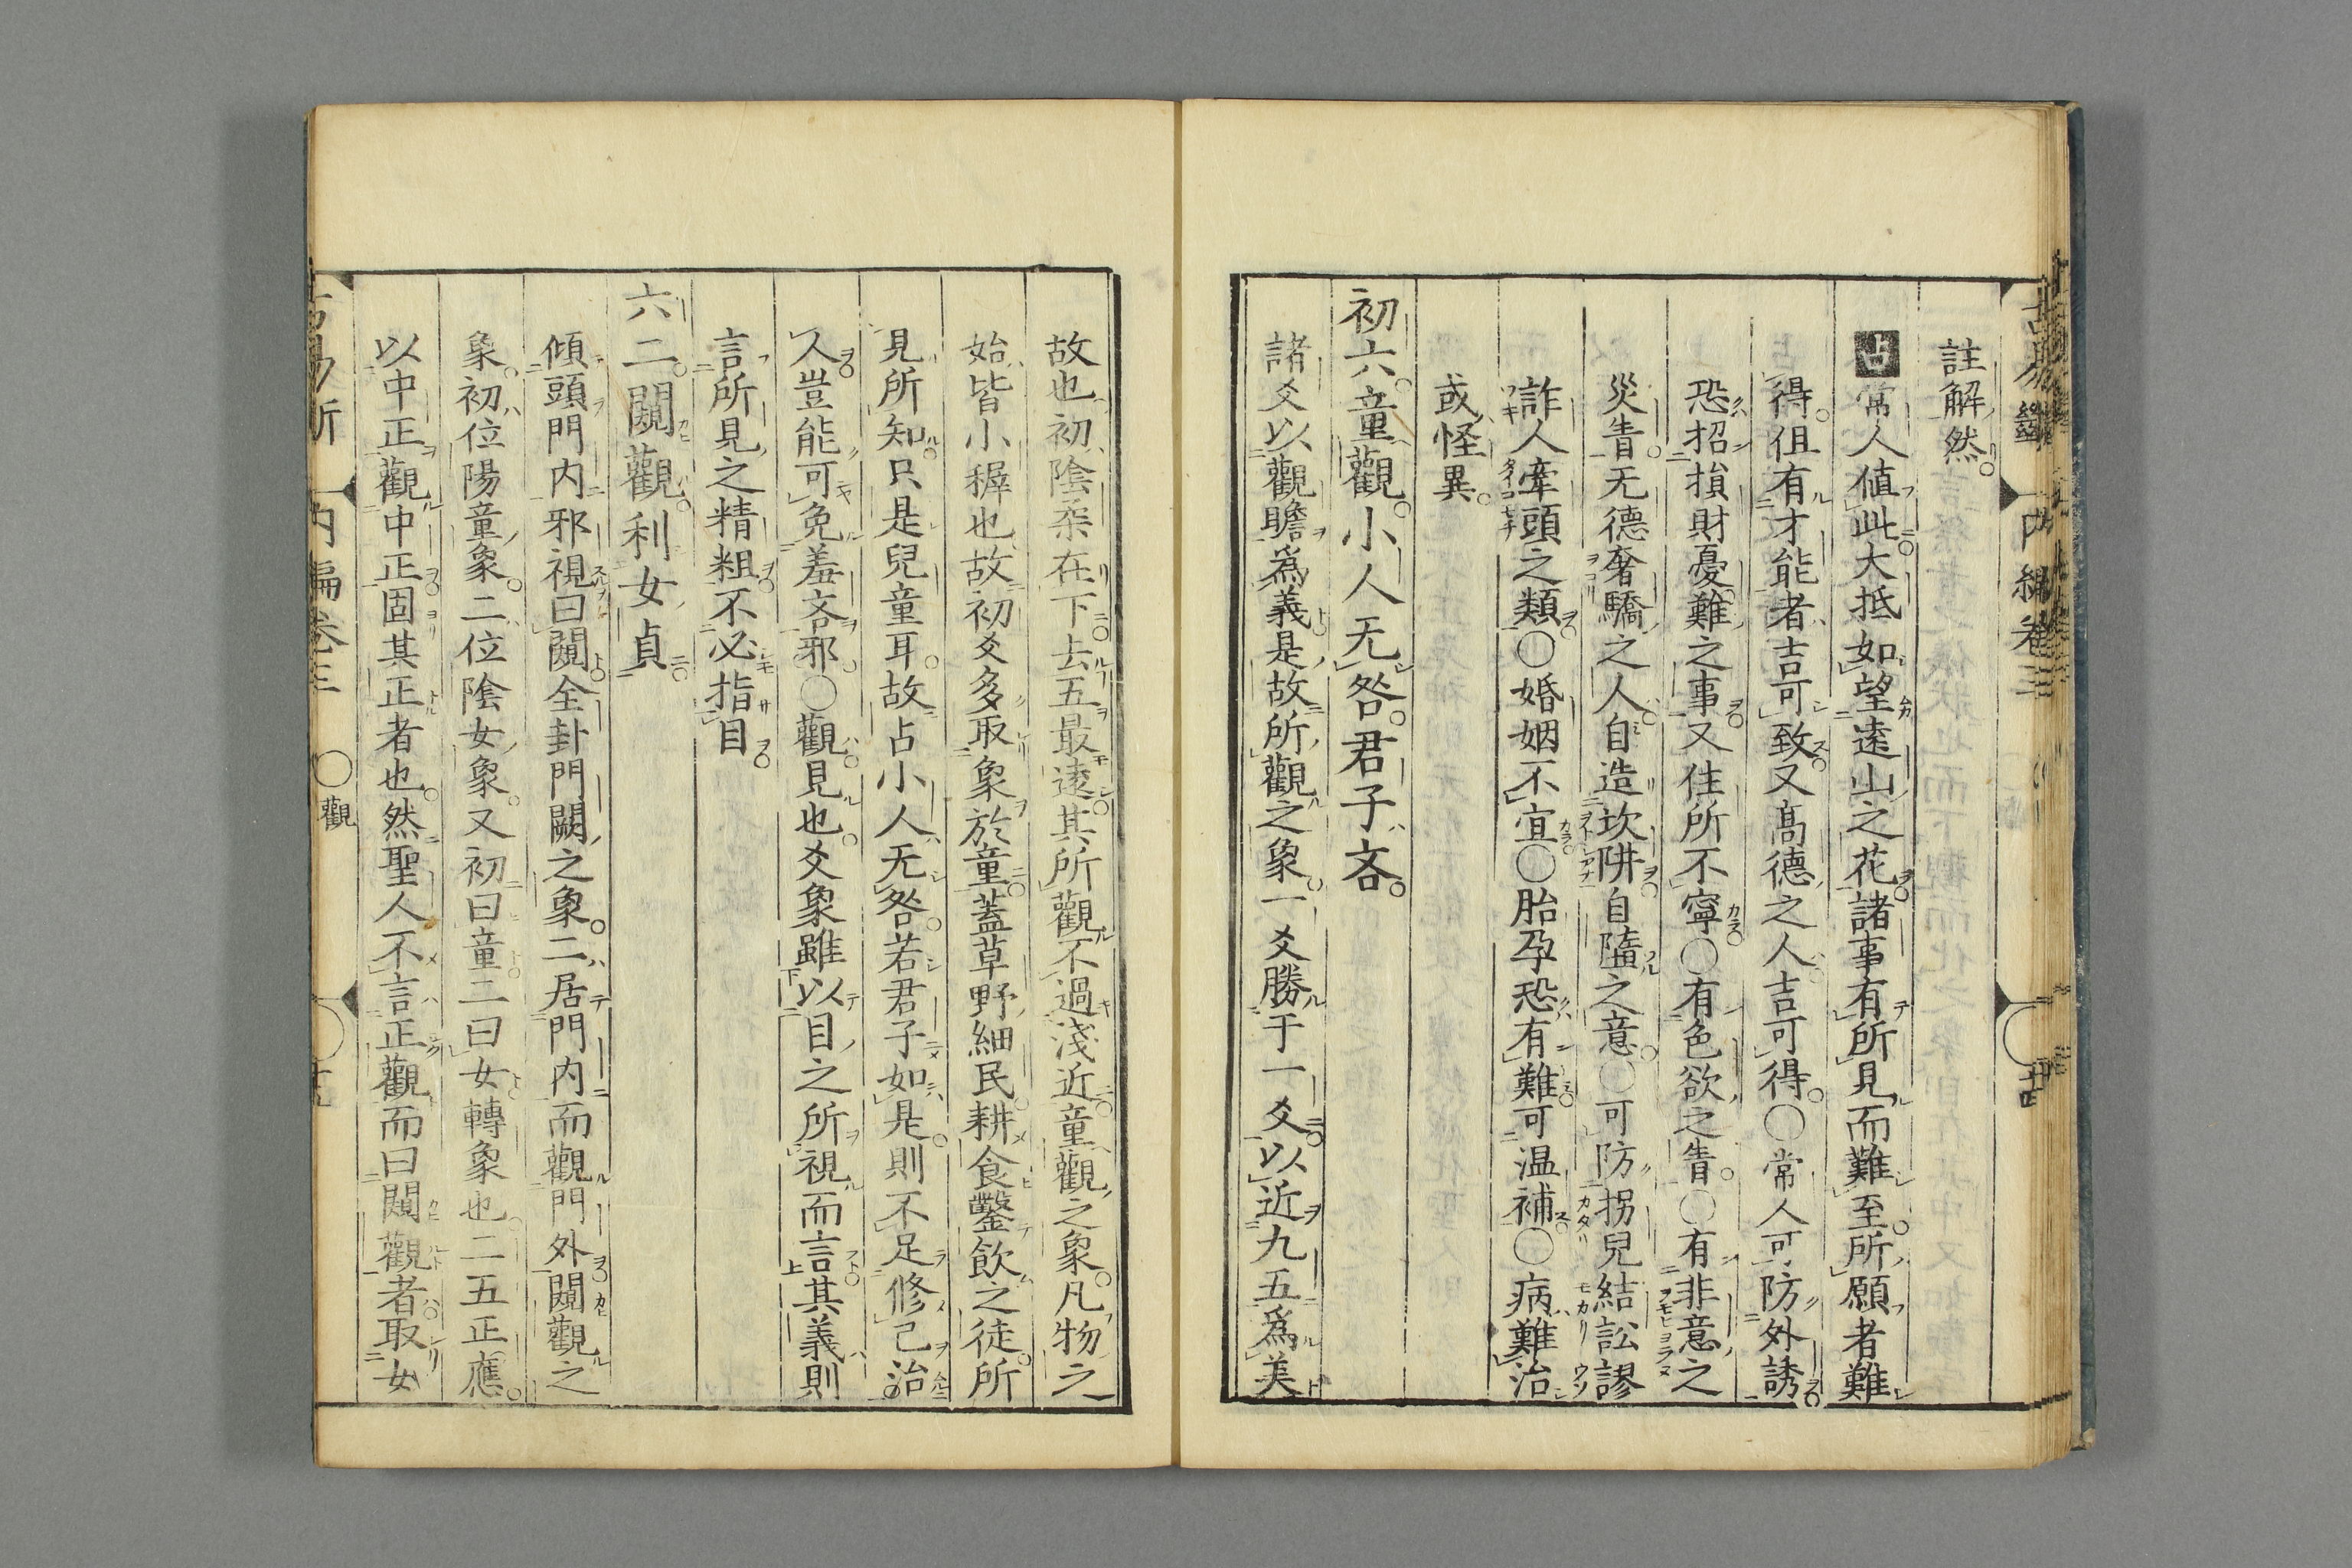 註解然
占常人値此大抵如望遠山之花諸事有所見而難至所願者難
得但有才能者吉可致又高德之人吉可得〇常人可防外誘
恐招損財憂難之事又住所不寧〇有色欲之眚〇有非意之
災眚无德奢驕之人自造坎阱自墮之意〇可防拐兒結訟謬
詐人牽頭之類〇婚姻不宜〇胎孕恐有難可温補〇病難治
或怪異
初六童觀小人无咎君子吝
諸爻以觀瞻爲義是故所觀之象一爻勝于一爻以近九五爲美
故也初陰柔在下去五最遠其所觀不過淺近童觀之象凡物之
始皆小穉也故初爻多取象於童蓋草野細民耕食鑿飮之徒所
見所知只是兒童耳故占小人无咎若君子如是則不足修己治
人豈能可免羞吝邪〇觀見也爻象雖以目之所視而言其義則
言所見之精粗不必指目
六二闚觀利女貞
傾頭門内邪視曰闚全卦門闕之象二居門内而觀門外闚觀之
象初位陽童象二位陰女象又初曰童二曰女轉象也二五正應
以中正觀中正固其正者也然聖人不言正觀而曰闚觀者取女
内編卷三
〇觀